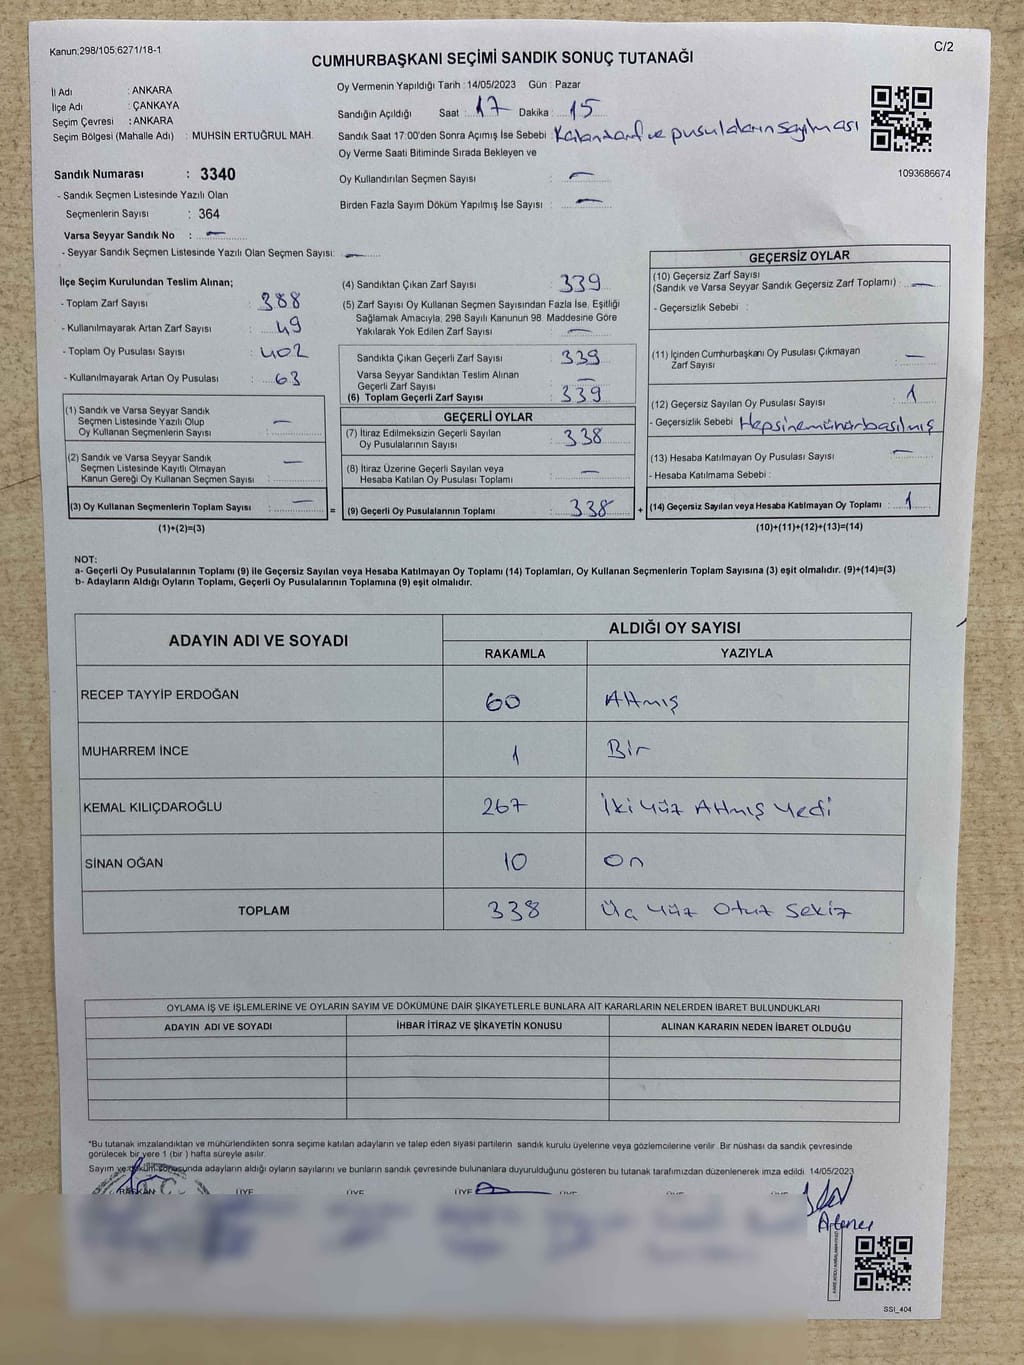 Kanun;298/105;6271/18-1
C/2
CUMHURBAŞKANI SEÇİMİ SANDIK SONUÇ TUTANAĞI
İl Adı : ANKARA
İlçe Adı : ÇANKAYA
Seçim Çevresi : ANKARA
Seçim Bölgesi (Mahalle Adı) : MUHSİN ERTUĞRUL MAH.
Oy Vermenin Yapıldığı Tarih : 14/05/2023 Gün : Pazar
Sandığın Açıldığı Saat : 17 Dakika : 15
Sandık Saat 17:00'den Sonra Açımış İse Sebebi : Kalan zarf ve pusulaların sayılması
Oy Verme Saati Bitiminde Sırada Bekleyen ve
Oy Kullandırılan Seçmen Sayısı : —
Birden Fazla Sayım Döküm Yapılmış İse Sayısı : —
1093686674
Sandık Numarası : 3340
- Sandık Seçmen Listesinde Yazılı Olan
Seçmenlerin Sayısı : 364
Varsa Seyyar Sandık No : —
- Seyyar Sandık Seçmen Listesinde Yazılı Olan Seçmen Sayısı: —
İlçe Seçim Kurulundan Teslim Alınan;
- Toplam Zarf Sayısı : 388
- Kullanılmayarak Artan Zarf Sayısı : 49
- Toplam Oy Pusulası Sayısı : 402
- Kullanılmayarak Artan Oy Pusulası : 63
(1) Sandık ve Varsa Seyyar Sandık
Seçmen Listesinde Yazılı Olup
Oy Kullanan Seçmenlerin Sayısı : —
(2) Sandık ve Varsa Seyyar Sandık
Seçmen Listesinde Kayıtlı Olmayan
Kanun Gereği Oy Kullanan Seçmen Sayısı : —
(3) Oy Kullanan Seçmenlerin Toplam Sayısı : — =
(1)+(2)=(3)
(4) Sandıktan Çıkan Zarf Sayısı : 339
(5) Zarf Sayısı Oy Kullanan Seçmen Sayısından Fazla İse, Eşitliği
Sağlamak Amacıyla; 298 Sayılı Kanunun 98. Maddesine Göre
Yakılarak Yok Edilen Zarf Sayısı : —
Sandıkta Çıkan Geçerli Zarf Sayısı : 339
Varsa Seyyar Sandıktan Teslim Alınan
Geçerli Zarf Sayısı : —
(6) Toplam Geçerli Zarf Sayısı : 339
GEÇERLİ OYLAR
(7) İtiraz Edilmeksizin Geçerli Sayılan
Oy Pusulalarının Sayısı : 338
(8) İtiraz Üzerine Geçerli Sayılan veya
Hesaba Katılan Oy Pusulası Toplamı : —
(9) Geçerli Oy Pusulalarının Toplamı : 338 +
GEÇERSİZ OYLAR
(10) Geçersiz Zarf Sayısı
(Sandık ve Varsa Seyyar Sandık Geçersiz Zarf Toplamı) : —
- Geçersizlik Sebebi :
(11) İçinden Cumhurbaşkanı Oy Pusulası Çıkmayan
Zarf Sayısı : —
(12) Geçersiz Sayılan Oy Pusulası Sayısı : 1
- Geçersizlik Sebebi Hepsine mühür basılmış
(13) Hesaba Katılmayan Oy Pusulası Sayısı : —
- Hesaba Katılmama Sebebi :
(14) Geçersiz Sayılan veya Hesaba Katılmayan Oy Toplamı : 1
(10)+(11)+(12)+(13)=(14)
NOT:
a- Geçerli Oy Pusulalarının Toplamı (9) ile Geçersiz Sayılan veya Hesaba Katılmayan Oy Toplamı (14) Toplamları, Oy Kullanan Seçmenlerin Toplam Sayısına (3) eşit olmalıdır. (9)+(14)=(3)
b- Adayların Aldığı Oyların Toplamı, Geçerli Oy Pusulalarının Toplamına (9) eşit olmalıdır.
ADAYIN ADI VE SOYADI ALDIĞI OY SAYISI
RAKAMLA YAZIYLA
RECEP TAYYİP ERDOĞAN 60 Altmış
MUHARREM İNCE 1 Bir
KEMAL KILIÇDAROĞLU 267 İki yüz Altmış Yedi
SİNAN OĞAN 10 On
TOPLAM 338 Üç yüz Otuz Sekiz
OYLAMA İŞ VE İŞLEMLERİNE VE OYLARIN SAYIM VE DÖKÜMÜNE DAİR ŞİKAYETLERLE BUNLARA AİT KARARLARIN NELERDEN İBARET BULUNDUKLARI
ADAYIN ADI VE SOYADI İHBAR İTİRAZ VE ŞİKAYETİN KONUSU ALINAN KARARIN NEDEN İBARET OLDUĞU
*Bu tutanak imzalandıktan ve mühürlendikten sonra seçime katılan adayların ve talep eden siyasi partilerin sandık kurulu üyelerine veya gözlemcilerine verilir. Bir nüshası da sandık çevresinde
görülecek bir yere 1 (bir ) hafta süreyle asılır.
Sayım ve döküm sonusunda adayların aldığı oyların sayılarını ve bunların sandık çevresinde bulunanlara duyurulduğunu gösteren bu tutanak tarafımızdan düzenlenerek imza edildi. 14/05/2023
BAŞKAN ÜYE ÜYE ÜYE ÜYE ÜYE
SSI_404